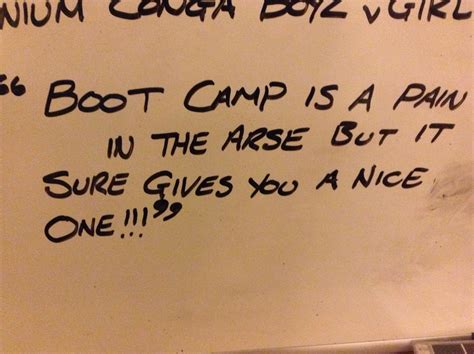 NIUM CONGA BOYZ v GIRL
“BOOT CAMP IS A PAIN
IN THE ARSE BUT IT
SURE GIVES YOU A NICE
ONE!!!”